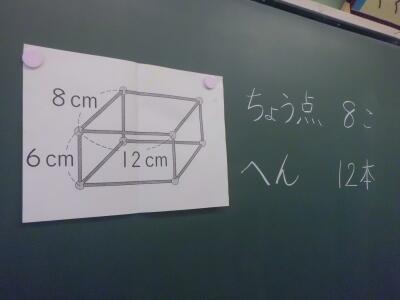 8cm
6cm
12cm
ちょう点 8こ
へん 12本